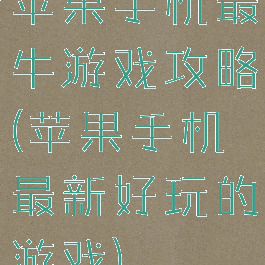 苹果手机最
牛游戏攻略
(苹果手机
最新好玩的
游戏)